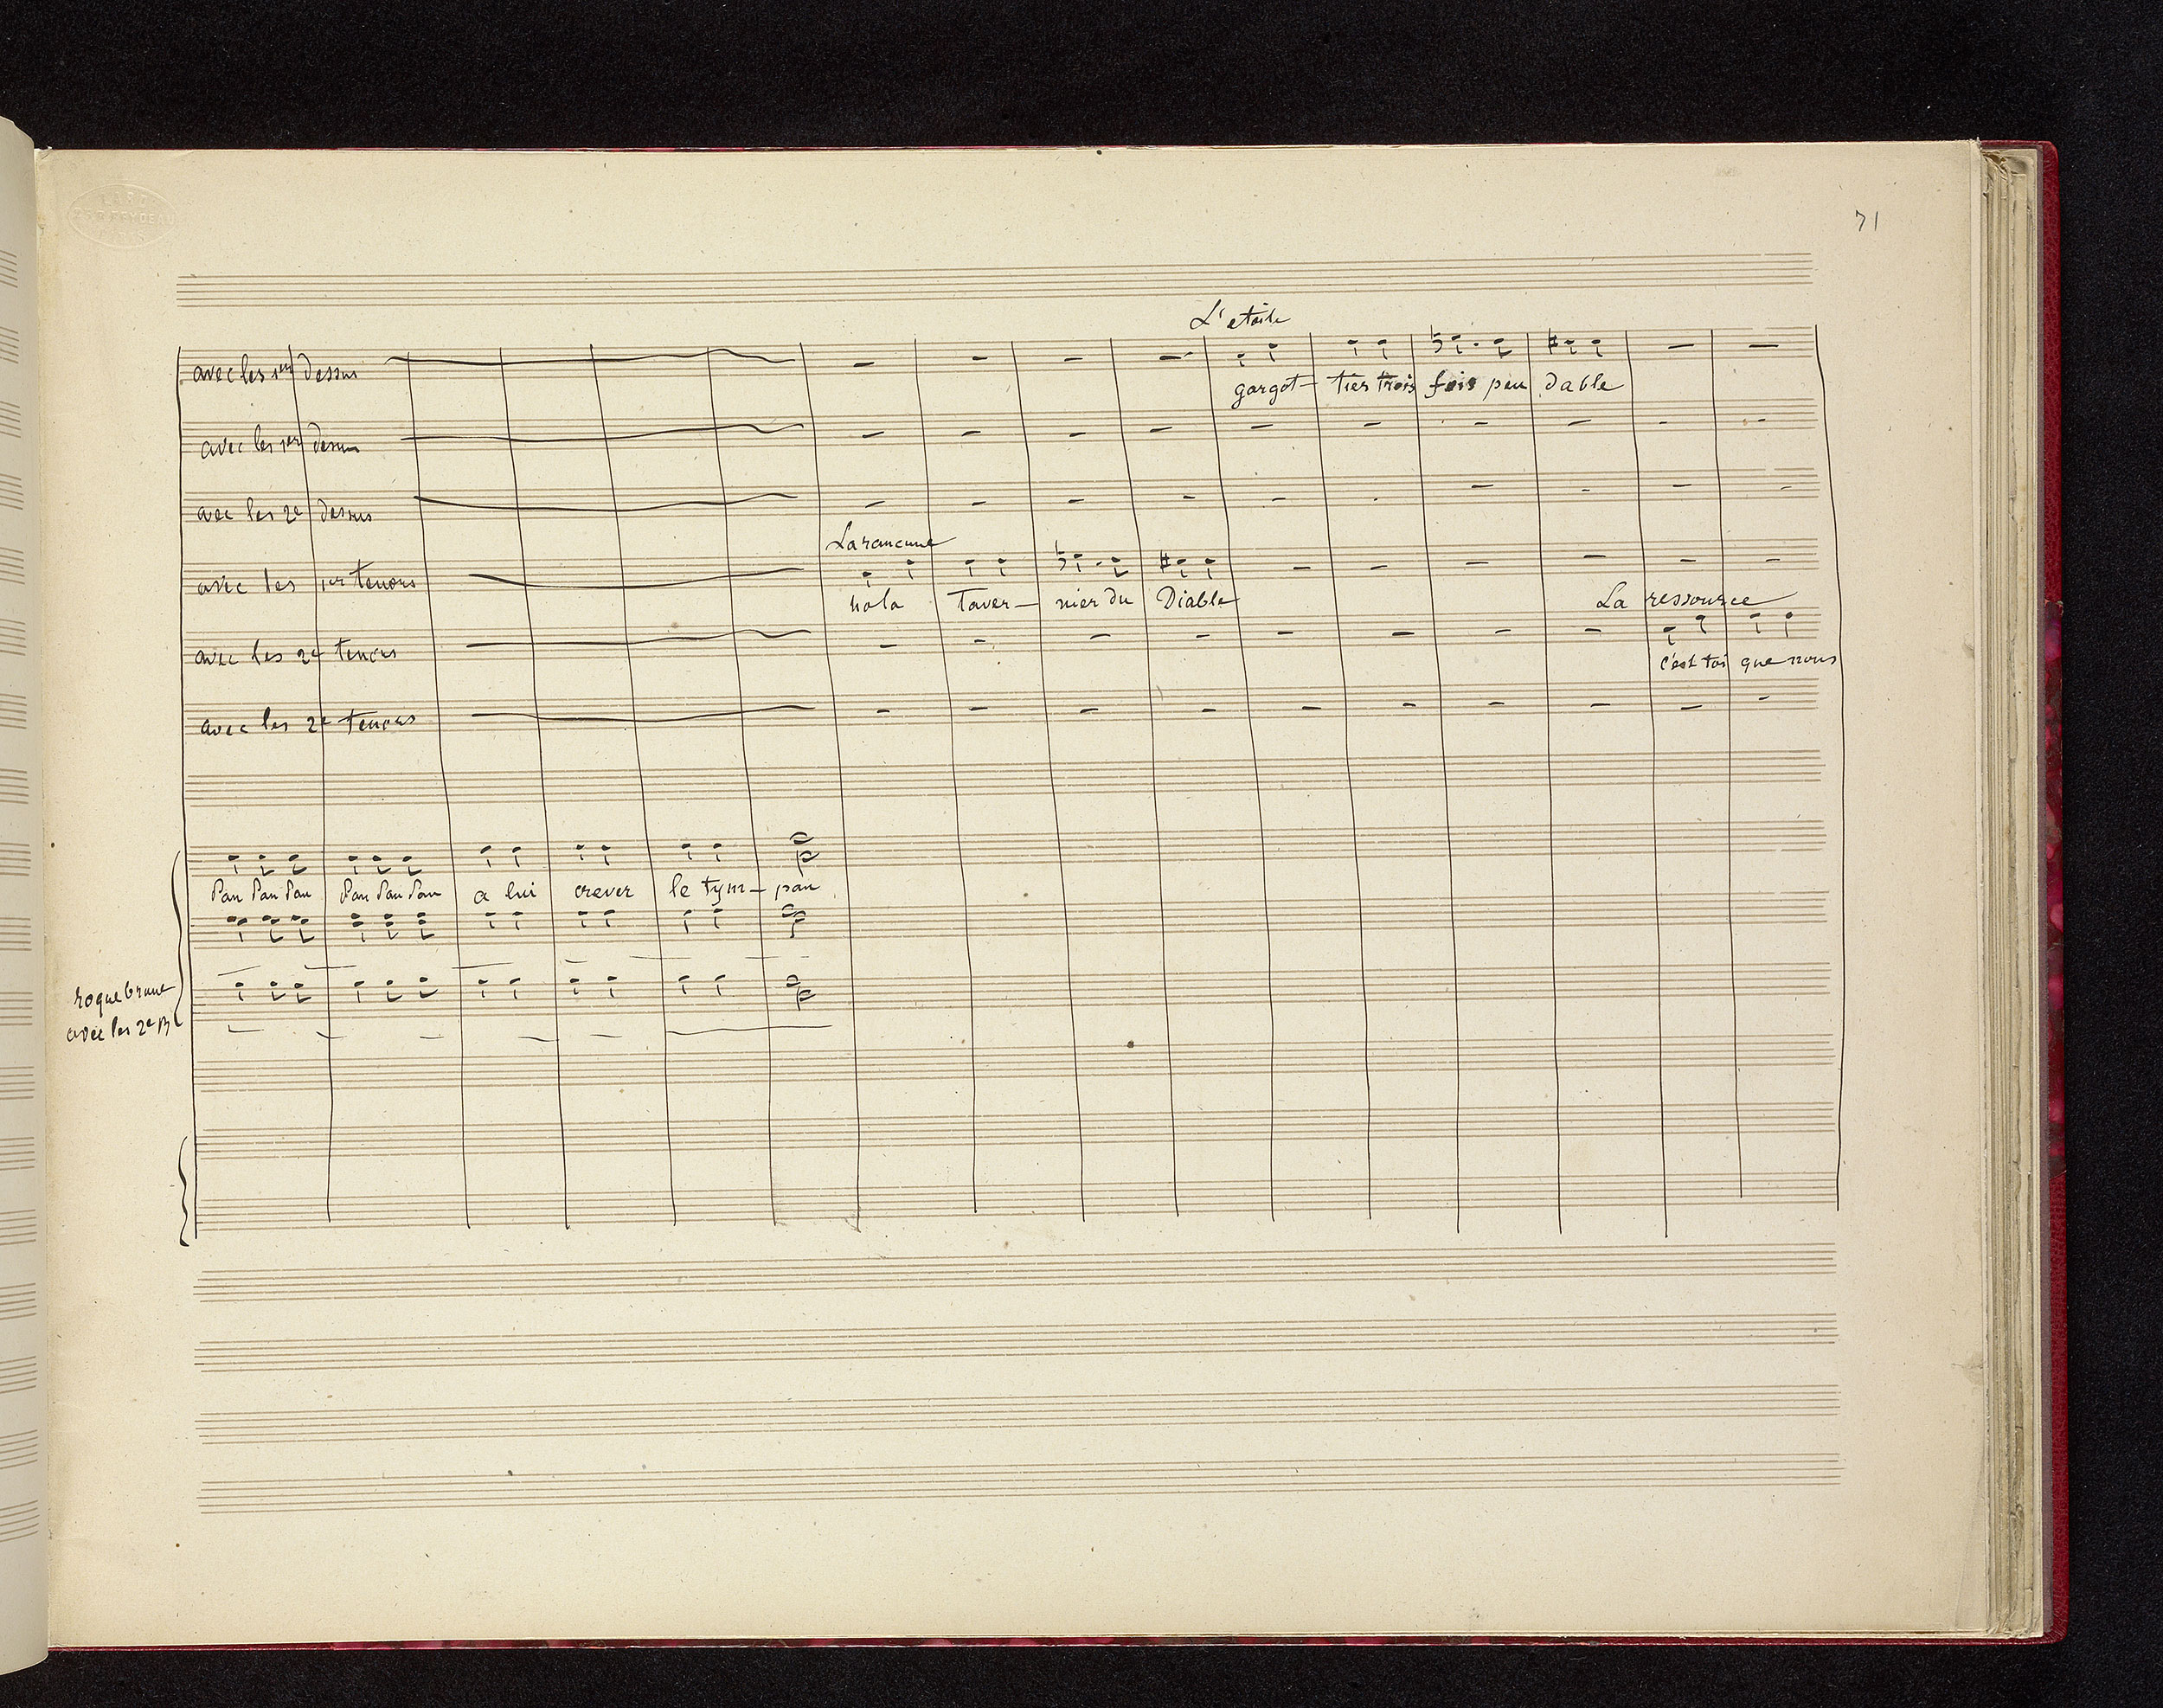 71
L'etoile
avec les 1ers dessus
gargot- tiers trois fois peu dable
avec les 1er dessus
avec les 2e dessus
Larancune
avec les 1er tenors
hola Taver- nier du Diable
La ressource
avec les 2e tenors
c'est toi que nous
avec les 2e tenors
Pan Pan Pan Pan Pan Pan a lui crever le tym- pan
roquebrune
avec les 2e B